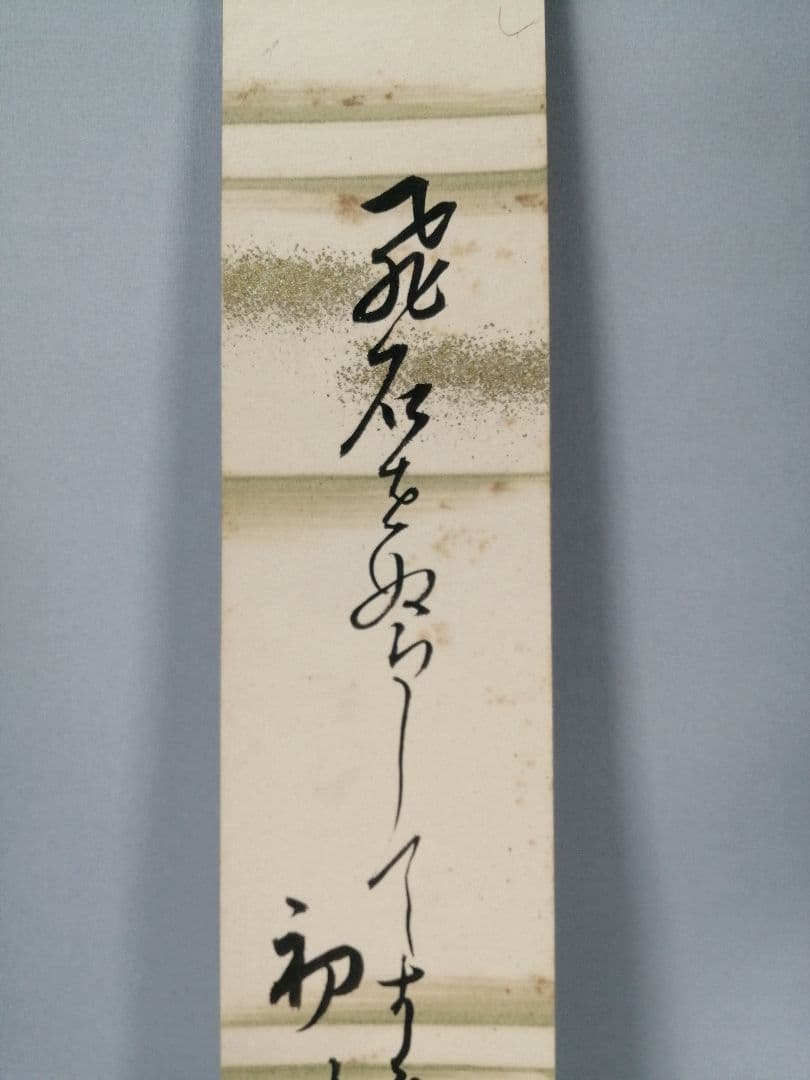 飛石をぬらして
初